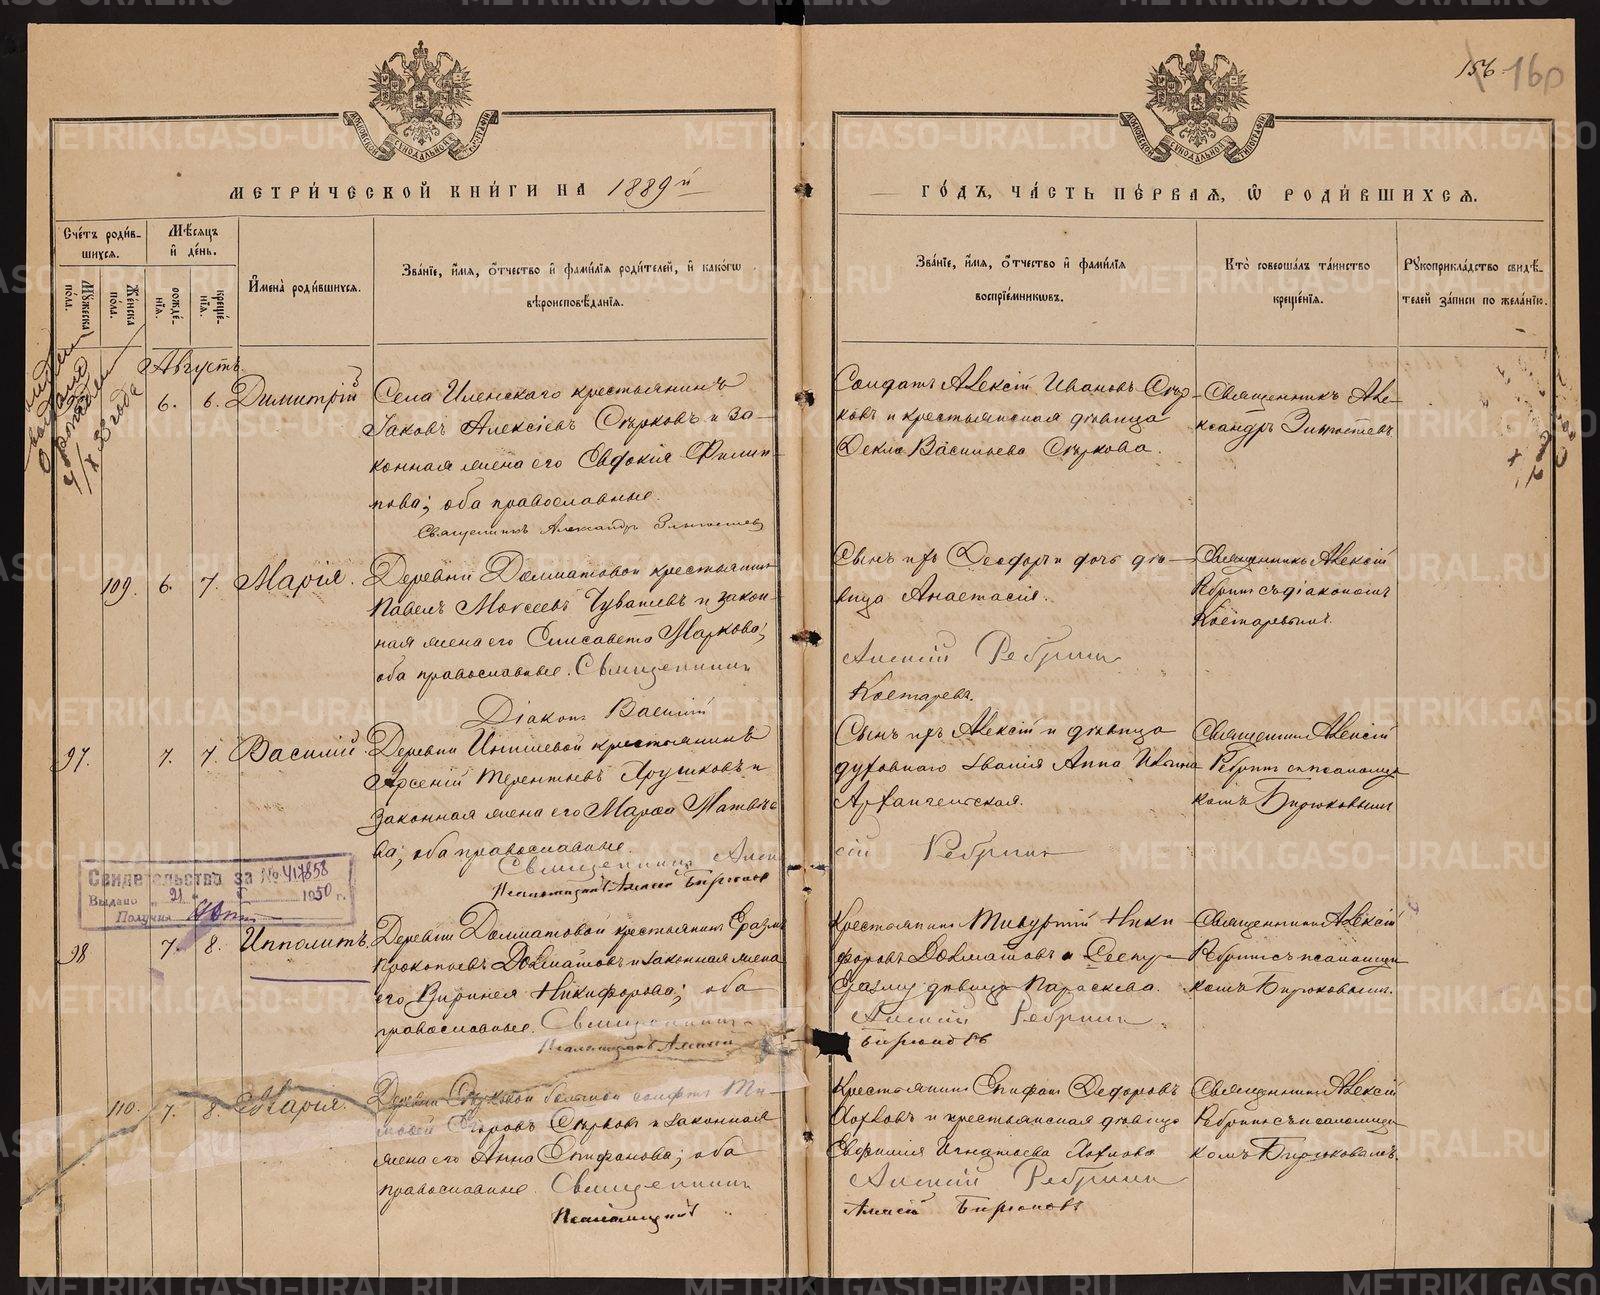 156
160
МЕТРИ́ЧЕСКОЙ КНИ́ГИ НА 1889й
ГО́ДЪ, ЧА́СТЬ ПЕ́РВАЯ, Ѡ РОДИ́ВШИХСЯ.
Сче́тъ роди́в-
шихся.
Мѣ́сяцъ
и де́нь.
Мꙋ́жеска
по́ла.
Же́нска
по́ла.
рожде́-
нїя.
креще́-
нїя.
И҆мена̀ роди́вшихся.
Зва́нїе, и҆́мя, ѻ҆́тчество и҆ фами́лїя роди́телей, и҆ како́гѡ
вѣроисповѣ́данїя.
Зва́нїе, и҆́мя, ѻ҆́тчество и҆ фами́лїя
воспрїе́мникѡвъ.
Кто̀ соверша́лъ та́инство
креще́нїя.
Рꙋкоприкла́дство свидѣ́-
телей за́писи по жела́нїю.
Августъ.
6. 6. Димитрій
Села Иленскаго крестьянинъ
Іаковъ Алексіевъ Сѣрковъ и за-
конная жена его Евдокія Филип-
пова; оба православные.
Священникъ Александръ
Солдатъ Алексій Ивановъ Сѣр-
ковъ и крестьянская дѣвица
Фекла Васильева Сѣркова.
Священникъ Але-
ксандръ
109. 6. 7. Марія.
Деревни Долматовой крестьянинъ
Павелъ Моѵсеевъ Чувашевъ и закон-
ная жена его Елисавета Маркова;
оба православные. Священникъ
Діаконъ Василій
Сынъ
вица Анастасія.
Алексій Ребринъ
Костаревъ.
Священникъ Алексій
Ребринъ съ діакономъ
Костаревымъ.
97. 7. 7. Василій.
Деревни крестьянинъ
Арсеній Терентьевъ Хрушковъ и
законная жена его Марѳа Матвѣе
ва; оба православные.
Священникъ Алек
Псаломщикъ Алексій Бирюковъ
Сынъ Алексій и дѣвица
духовнаго званія Анна Ивановна
Архангельская.
сій Ребринъ
Священникъ Алексій
Ребринъ съ псаломщи
комъ Бирюковымъ
Свидетельство за № 417858
Выдано „21“ 5 1950 г.
Получил
98 7. 8. Ипполитъ.
Деревни Долматовой крестьянинъ Еразмъ
Прокопьевъ Долматовъ и законная жена
его Виринея Никифорова; оба
православные. Священникъ
Псаломщикъ Алексій
Крестьянинъ Тивуртій Ники
форовъ Долматовъ и Сестра
Еразму дѣвица Параскева.
Алексій Ребринъ
Бирюковъ
Священникъ Алексій
Ребринъ съ псаломщи
комъ Бирюковымъ.
110. 7. 8. Марія.
Деревни Сѣрковой солдатъ Ти-
моѳей Егоровъ Сѣрковъ и законная
жена его Анна Епифанова; оба
православные. Священникъ
Псаломщикъ
Крестьянинъ Епифанъ Ѳедоровъ
Хохловъ и крестьянская дѣвица
Евфимія Игнатьева Хохлова
Алексій Ребринъ
Алексій Бирюковъ
Священникъ Алексій
Ребринъ съ псаломщи
комъ Бирюковымъ.
METRIKI.GASO-URAL.RU